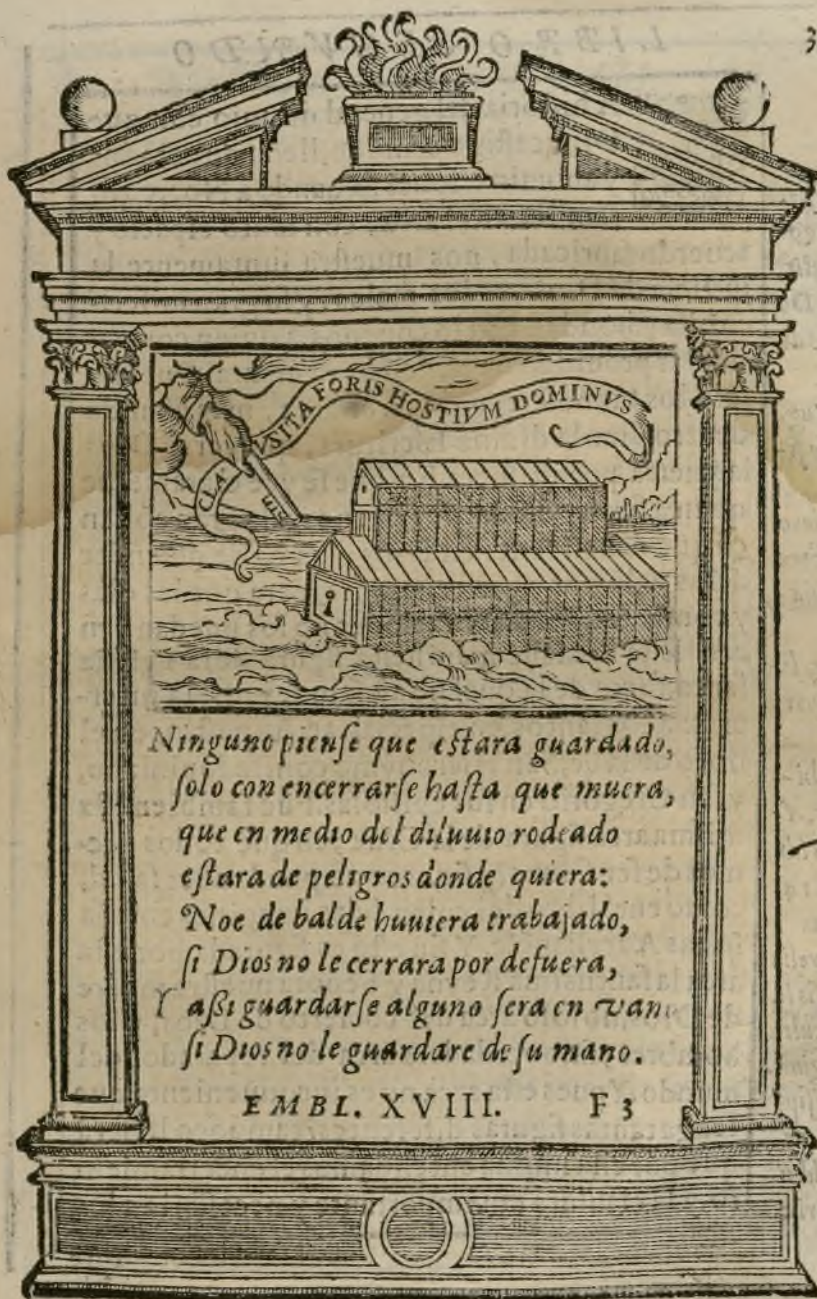 3
CLAVSIT A FORIS HOSTIVM DOMINVS
Ninguno pienſe que eſtara guardado,
ſolo con encerrarſe haſta que muera,
que en medio del diluuio rodeado
eſtara de peligros donde quiera:
Noe de balde huuiera trabajado,
ſi Dios no le cerrara por defuera,
Y aßi guardarſe alguno ſera en van
ſi Dios no le guardare de ſu mano.
EMBL. XVIII. F 3